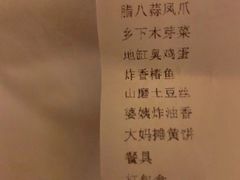 腊八蒜凤爪
乡下木芽菜
地缸臭鸡蛋
炸香椿鱼
山磨土豆丝
婆姨炸油香
大妈摊黄饼
餐具